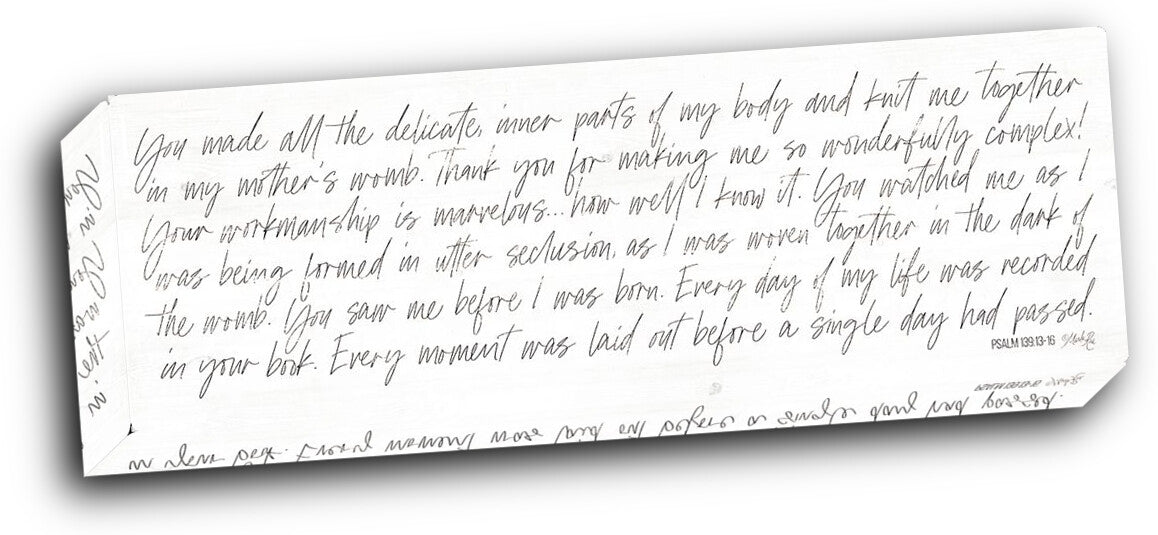 You made all the delicate, inner parts of my body and knit me together
in my mother's womb. Thank you for making me so wonderfully complex!
Your workmanship is marvelous... how well I know it. You watched me as I
was being formed in utter seclusion, as I was woven together in the dark of
the womb. You saw me before I was born. Every day of my life was recorded
in your book. Every moment was laid out before a single day had passed.
PSALM 139:13-16